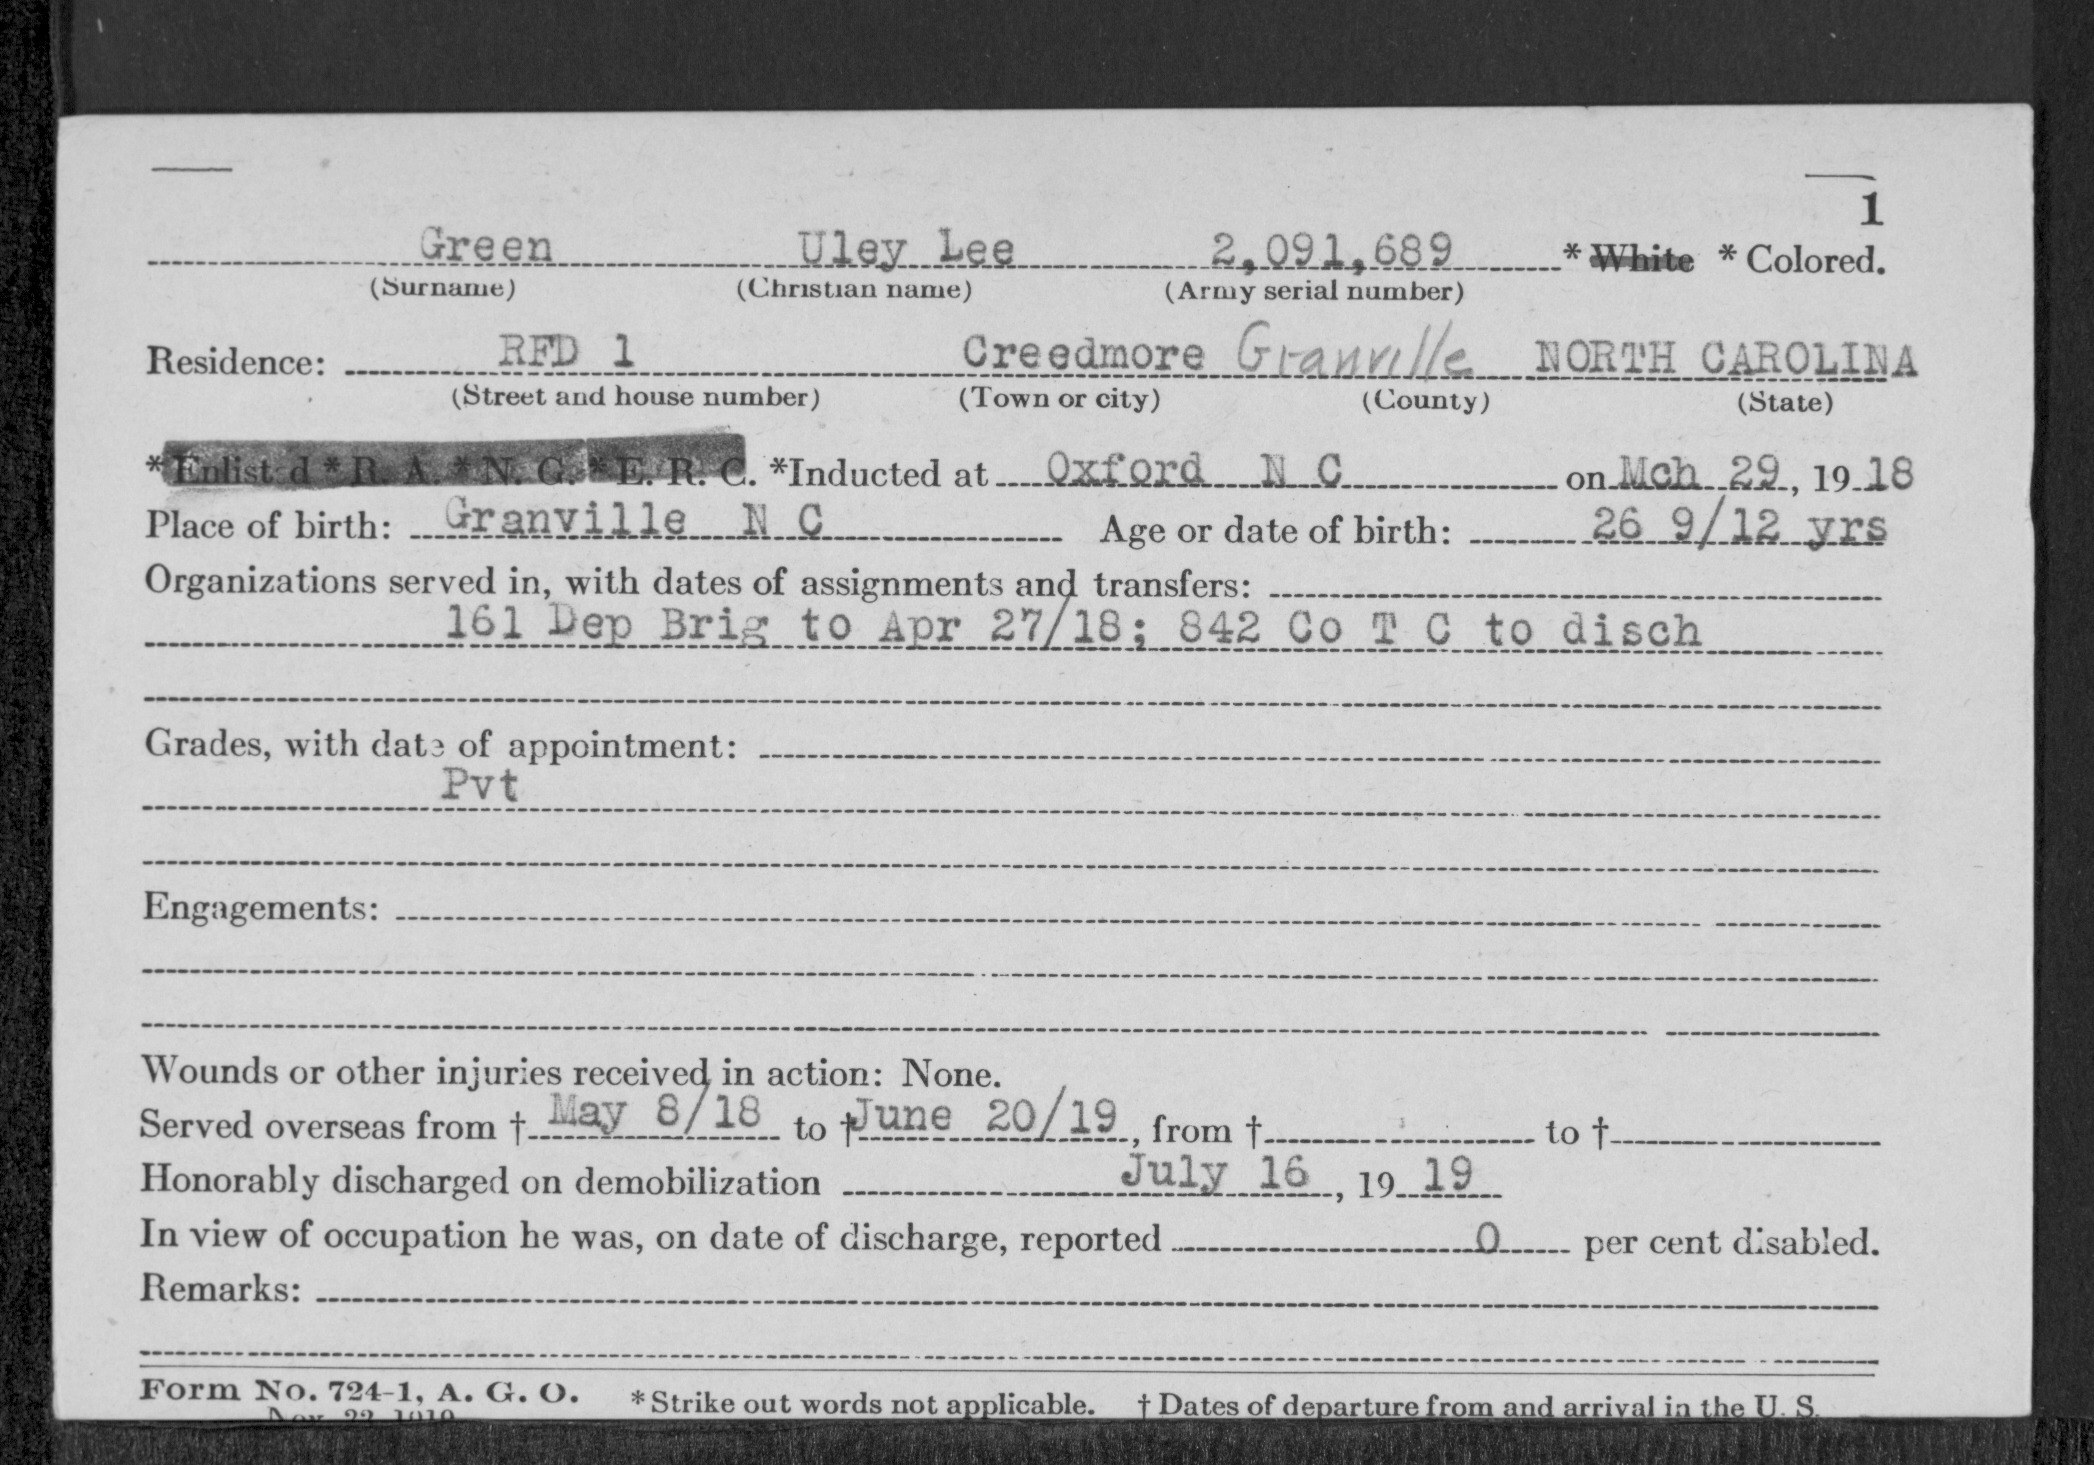 1
Green Uley Lee 2,091,689 * White * Colored.
(Surname) (Christian name) (Army serial number)
Residence: RFD 1 Creedmore Granville NORTH CAROLINA
(Street and house number) (Town or city) (County) (State)
*Enlisted *R. A. *N. G. *E. R. C. *Inducted at Oxford N C on Mch 29, 19 18
Place of birth: Granville N C Age or date of birth: 26 9/12 yrs
Organizations served in, with dates of assignments and transfers:
161 Dep Brig to Apr 27/18; 842 Co T C to disch
Grades, with date of appointment:
Pvt
Engagements:
Wounds or other injuries received in action: None.
Served overseas from † May 8/18 to † June 20/19, from † to †
Honorably discharged on demobilization July 16, 19 19
In view of occupation he was, on date of discharge, reported 0 per cent disabled.
Remarks:
Form No. 724-1, A. G. O. *Strike out words not applicable. † Dates of departure from and arrival in the U. S.
Nov. 22, 1919